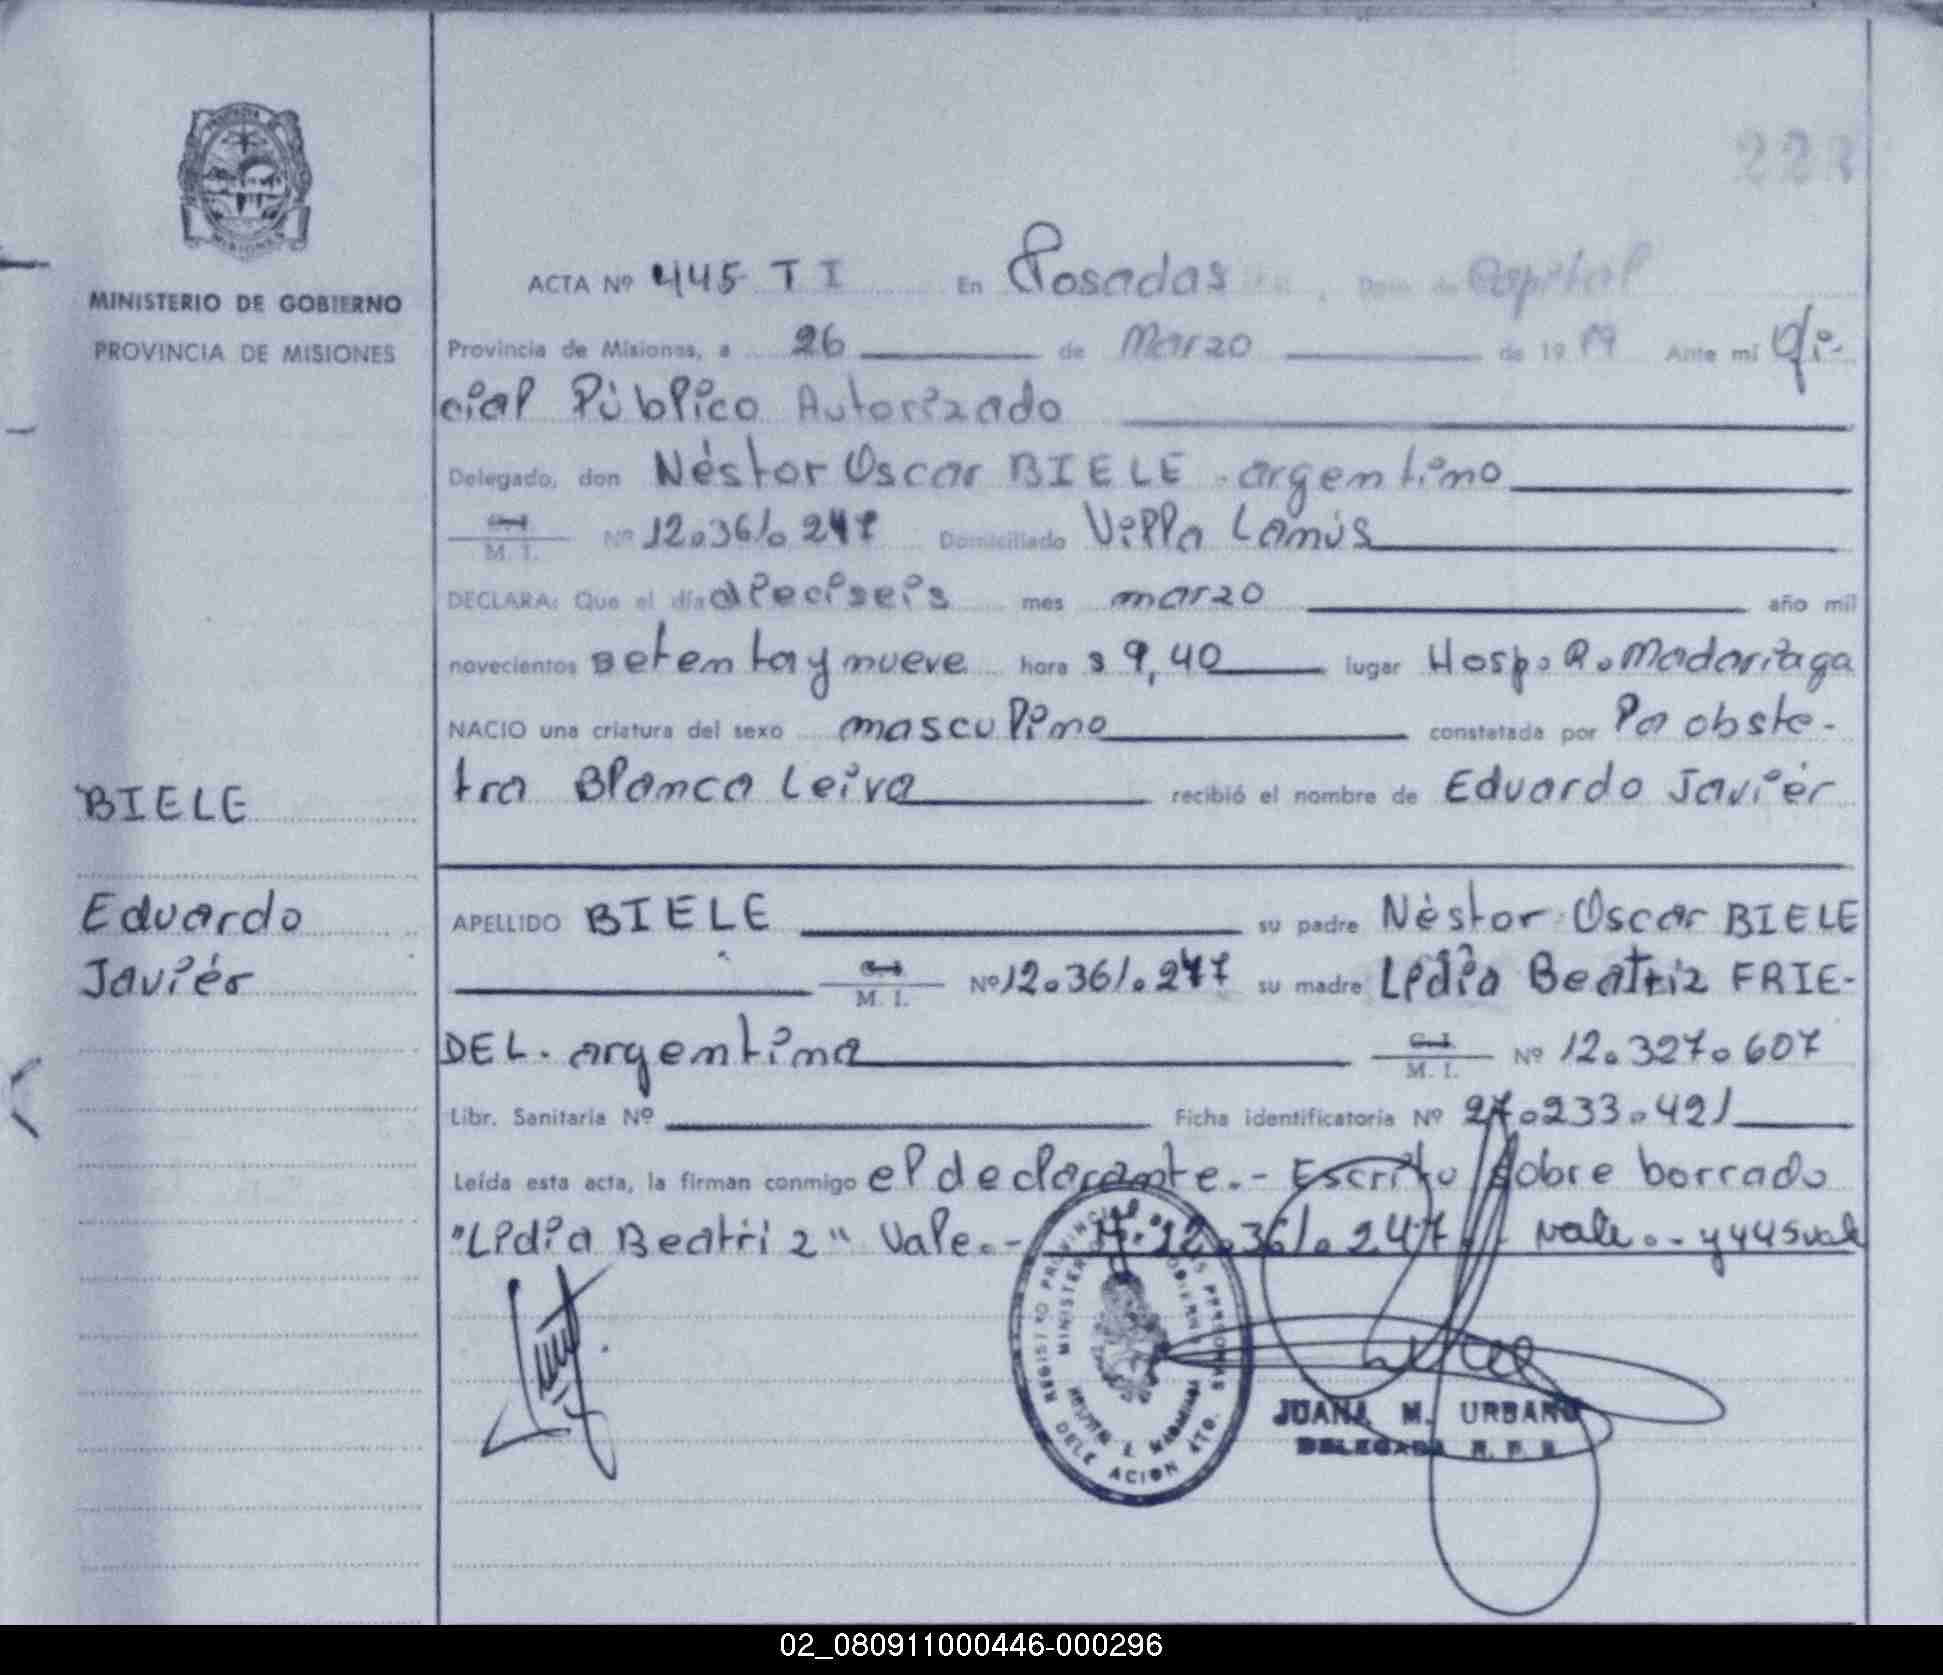 223
MINISTERIO DE GOBIERNO
PROVINCIA DE MISIONES
ACTA Nº 445 T I En Posadas, Dpto. de Capital
Provincia de Misiones, a 26 de Marzo de 1979 Ante mí Ofi-
cial Público Autorizado
Delegado, don Néstor Oscar BIELE argentino
C.I. M. I. Nº 12.361.247 Domiciliado Villa Lanús
DECLARA: Que el día dieciseis mes marzo año mil
novecientos setenta y nueve hora s 9,40 lugar Hosp. R. Madariaga
NACIO una criatura del sexo masculino constatada por la obste-
tra Blanca Leiva recibió el nombre de Eduardo Javiér
BIELE
Eduardo
Javiér
APELLIDO BIELE su padre Néstor Oscar BIELE
C.I. M. I. Nº 12.361.247 su madre Lidia Beatriz FRIE-
DEL. argentina C.I. M. I. Nº 12.327.607
Libr. Sanitaria Nº Ficha identificatoria Nº 27.233.421
Leída esta acta, la firman conmigo el declarante.- Escrito sobre borrado
"Lidia Beatriz" Vale.- 12.361.247 vale.- y 445 vale
REGISTRO PROVINCIAL DE LAS PERSONAS
MINISTERIO GOBIERNO
DELEGACION 4TO.
JUANA M. URBANO
DELEGADA R. P. P.
02_080911000446-000296